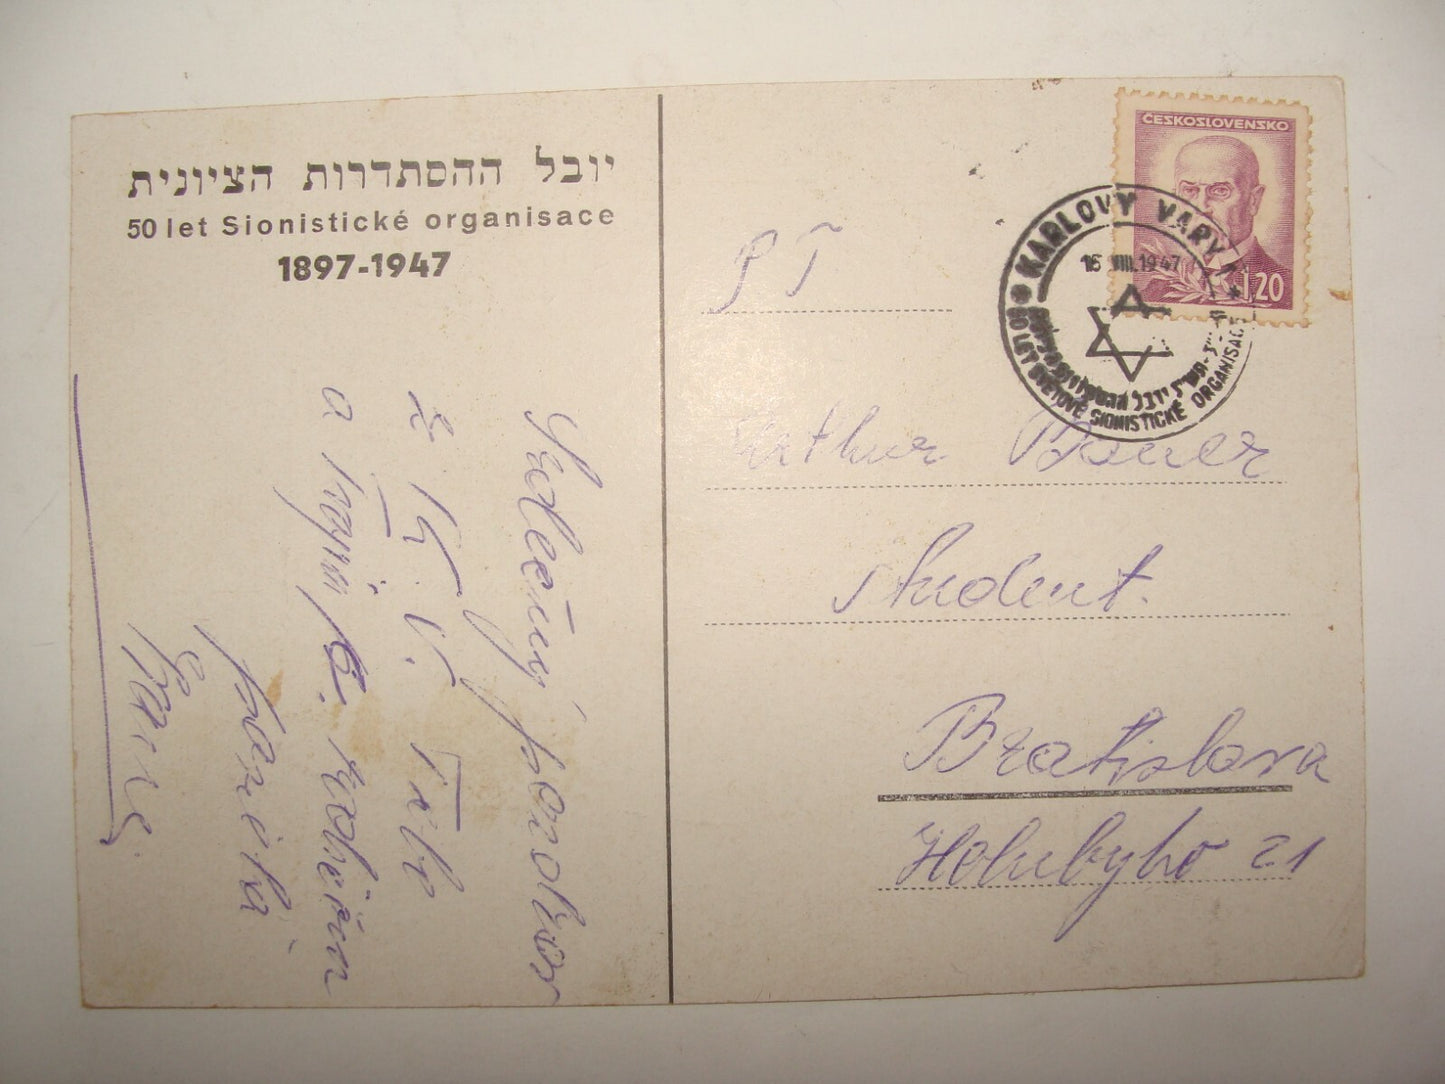 יובל ההסתדרות הציונית
50 let Sionistické organisace
1897-1947
Srdečný pozdrav
z K. V. Tebe
a tvojim rodičům
Pavel
ČESKOSLOVENSKO
1.20
KARLOVY VARY 1
16 VIII.1947
50 LET SVĚTOVÉ SIONISTICKÉ ORGANISACE
יובל
P T
Arthur Bauer
student.
Bratislava
Holubyho 21